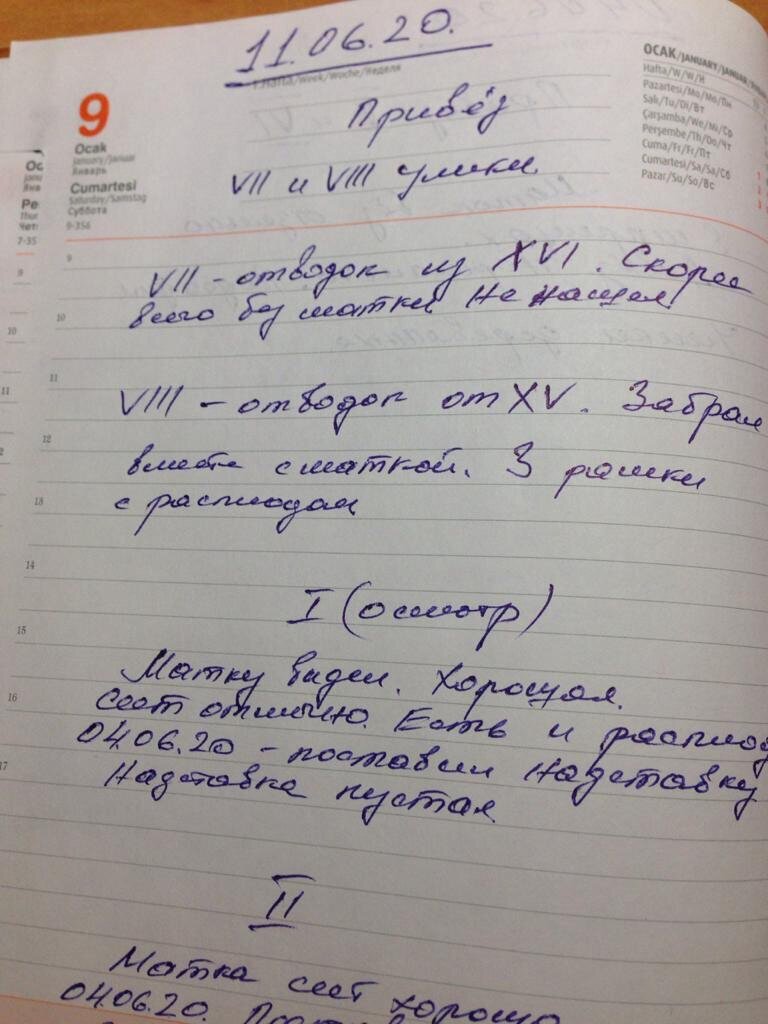 11.06.20.
1.Hafta/Week/Woche/Неделя
9
Ocak
January/Januar
Январь
Cumartesi
Saturday/Samstag
Суббота
9-356
OCAK/JANUARY/JANUAR/
Hafta/W/W/Н
Pazartesi/Mo/Mo/Пн
Salı/Tu/Di/Вт
Çarşamba/We/Mi/Ср
Perşembe/Th/Do/Чт
Cuma/Fr/Fr/Пт
Cumartesi/Sa/Sa/Сб
Pazar/Su/So/Вс
Привёз
VII и VIII улики.
VII - отводок из XVI. Скорее
всего без матки. Не нашел
VIII - отводок от XV. Забрал
вместе с маткой. 3 рамки
с расплодом
I (осмотр)
Матку видел. Хорошая.
Сеет отлично. Есть и расплод
04.06.20 - поставил надставку
Надставка пустая.
II
Матка сеет хорошо
04.06.20.
9
10
11
12
13
14
15
16
17